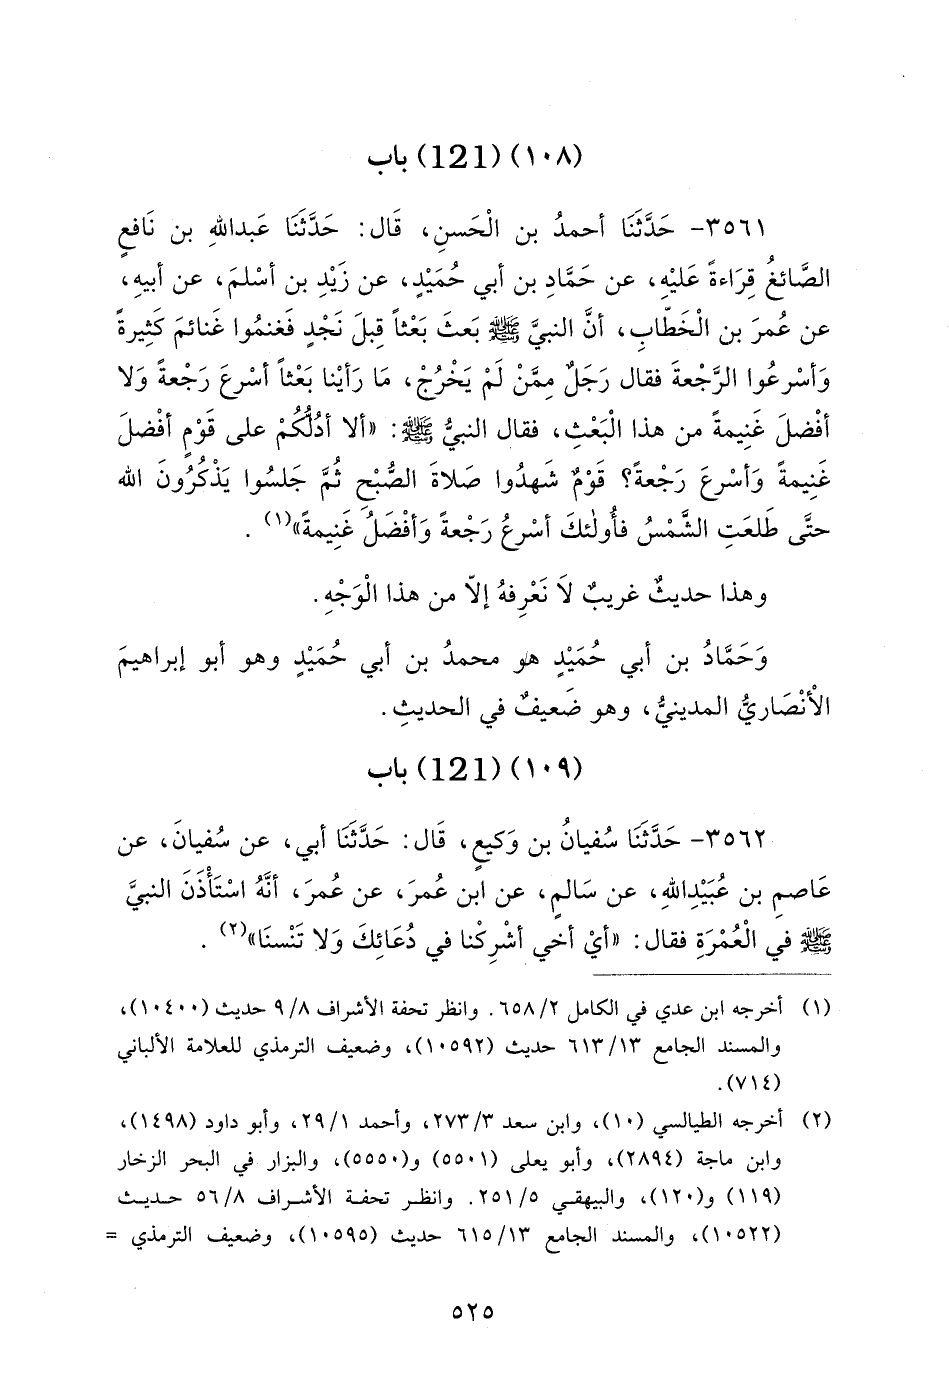 (١٠٨) (121) باب
٣٥٦١- حَدَّثَنَا أحمدُ بن الْحَسنِ، قَال: حَدَّثَنَا عَبدالله بن نَافعٍ
الصَّائغُ قِرَاءةً عَليْهِ، عن حَمَّادِ بن أبي حُمَيْدٍ، عن زَيْدِ بن أسْلمَ، عن أبيهِ،
عن عُمرَ بن الْخَطّابِ، أنَّ النبيَّ ﷺ بَعثَ بَعْثاً قِبلَ نَجْدٍ فَغنمُوا غَنائمَ كَثِيرةً
وَأسْرعُوا الرَّجْعةَ فقال رَجلٌ مِمَّنْ لَمْ يَخْرُجْ، مَا رَأيْنا بَعْثاً أسْرعَ رَجْعةً وَلا
أفْضلَ غَنِيمةً من هذا الْبَعْثِ، فقال النبيُّ ﷺ: «ألا أدُلُّكُمْ على قَوْمٍ أفْضلَ
غَنِيمةً وَأسْرعَ رَجْعةً؟ قَوْمٌ شَهدُوا صَلاةَ الصُّبْحِ ثُمَّ جَلسُوا يَذْكُرُونَ الله
حتَّى طَلعَتِ الشَّمْسُ فأُولٰئكَ أسْرعُ رَجْعةً وَأفْضلُ غَنِيمةً»(١) .
وهذا حديثٌ غريبٌ لاَ نَعْرِفهُ إلاّ من هذا الْوَجْهِ.
وَحَمَّادُ بن أبي حُمَيْدٍ هو محمدُ بن أبي حُمَيْدٍ وهو أبو إبراهيمَ
الْأنْصَاريُّ المدينيُّ، وهو ضَعيفٌ في الحديثِ.
(١٠٩) (121) باب
٣٥٦٢- حَدَّثَنَا سُفيانُ بن وَكيعٍ، قَال: حَدَّثَنَا أبي، عن سُفيانَ، عن
عَاصمِ بن عُبَيْدِالله، عن سَالمٍ، عن ابن عُمرَ، عن عُمرَ، أنَّهُ اسْتَأْذَنَ النبيَّ
ﷺ في الْعُمْرَةِ فقال: «أيْ أخي أشْرِكْنا في دُعَائِكَ وَلا تَنْسنَا»(٢) .
(١) أخرجه ابن عدي في الكامل ٢/ ٦٥٨. وانظر تحفة الأشراف ٨/ ٩ حديث (١٠٤٠٠)،
والمسند الجامع ١٣/ ٦١٣ حديث (١٠٥٩٢)، وضعيف الترمذي للعلامة الألباني
(٧١٤).
(٢) أخرجه الطيالسي (١٠)، وابن سعد ٣/ ٢٧٣، وأحمد ١/ ٢٩، وأبو داود (١٤٩٨)،
وابن ماجة (٢٨٩٤)، وأبو يعلى (٥٥٠١) و(٥٥٥٠)، والبزار في البحر الزخار
(١١٩) و(١٢٠)، والبيهقي ٥/ ٢٥١. وانظر تحفة الأشراف ٨/ ٥٦ حديث
(١٠٥٢٢)، والمسند الجامع ١٣/ ٦١٥ حديث (١٠٥٩٥)، وضعيف الترمذي =
٥٢٥